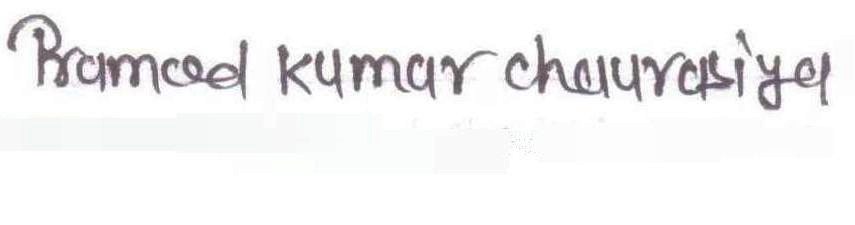 Pramood kumar chaurasiya